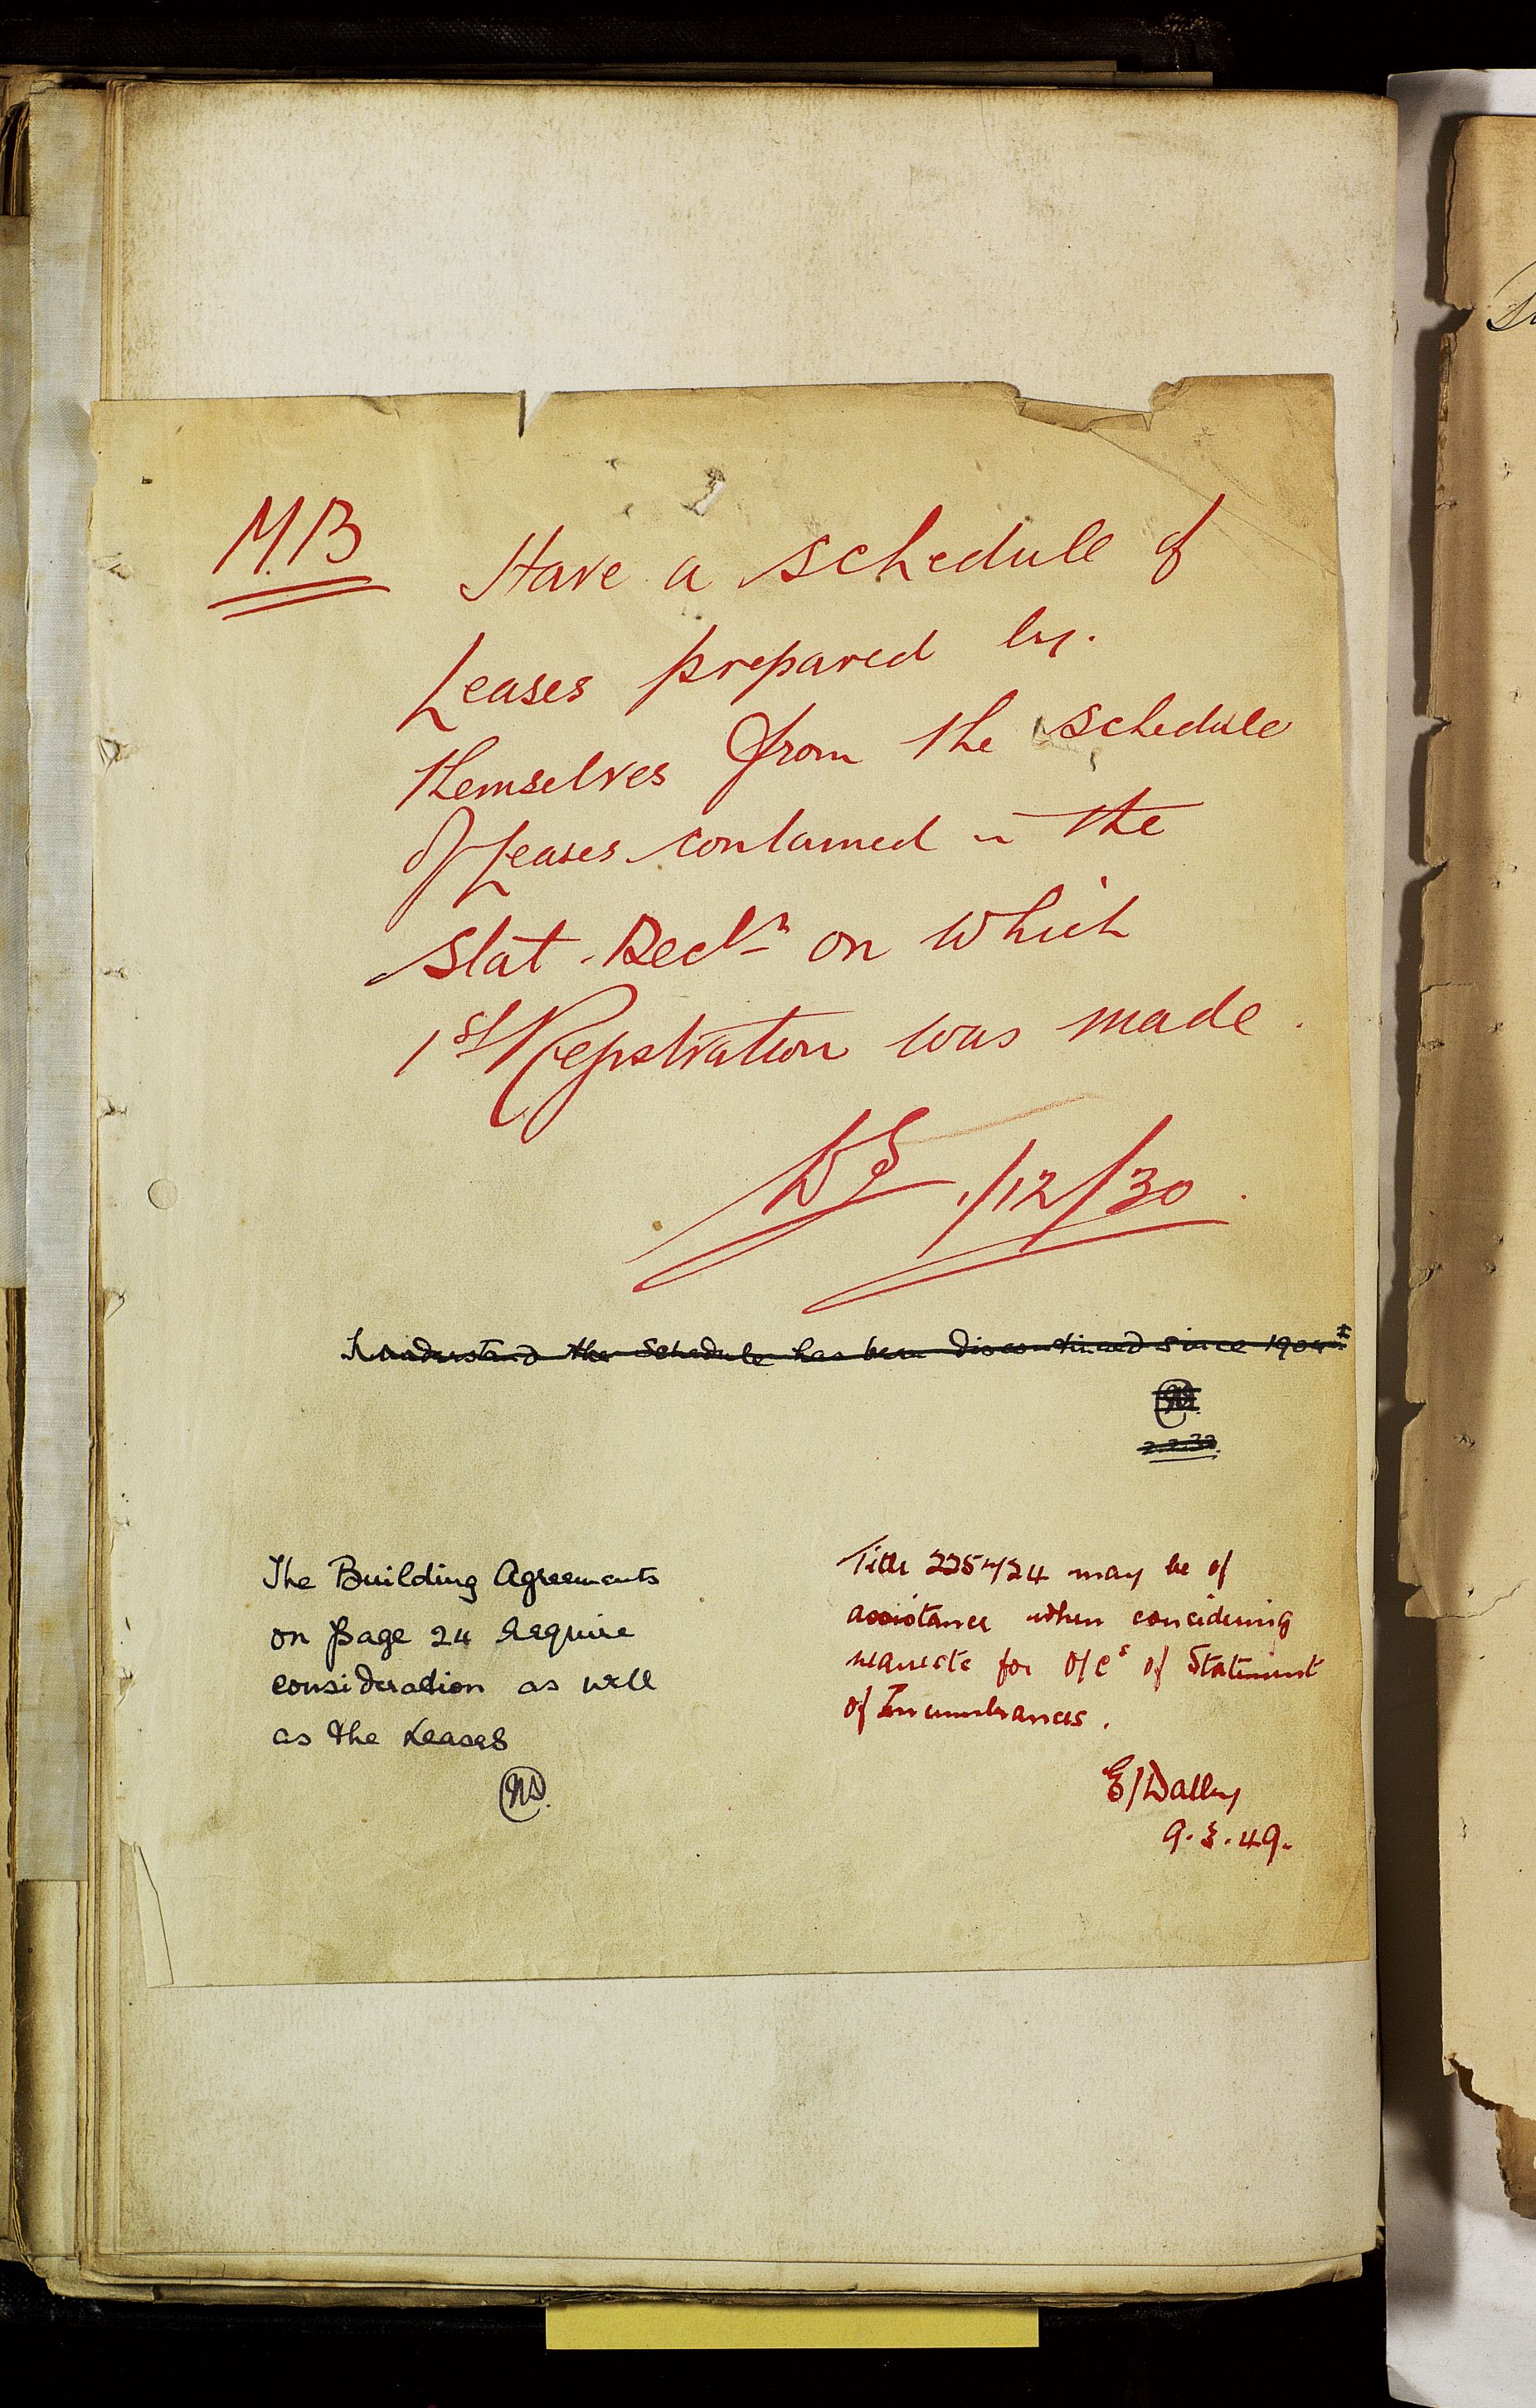 M.B
Have a schedule of
Leases prepared by.
themselves from the schedule
of Leases contained in the
Stat. Decln on which
1st Registration was made.
1/12/30.
I understand the Schedule has been discontinued since 1904
2.2.32.
The Building Agreements
on page 24 require
consideration as well
as the Leases
Title 225424 may be of
assistance when considering
requests for O/Cs of Statement
of Incumbrances.
9.3.49.